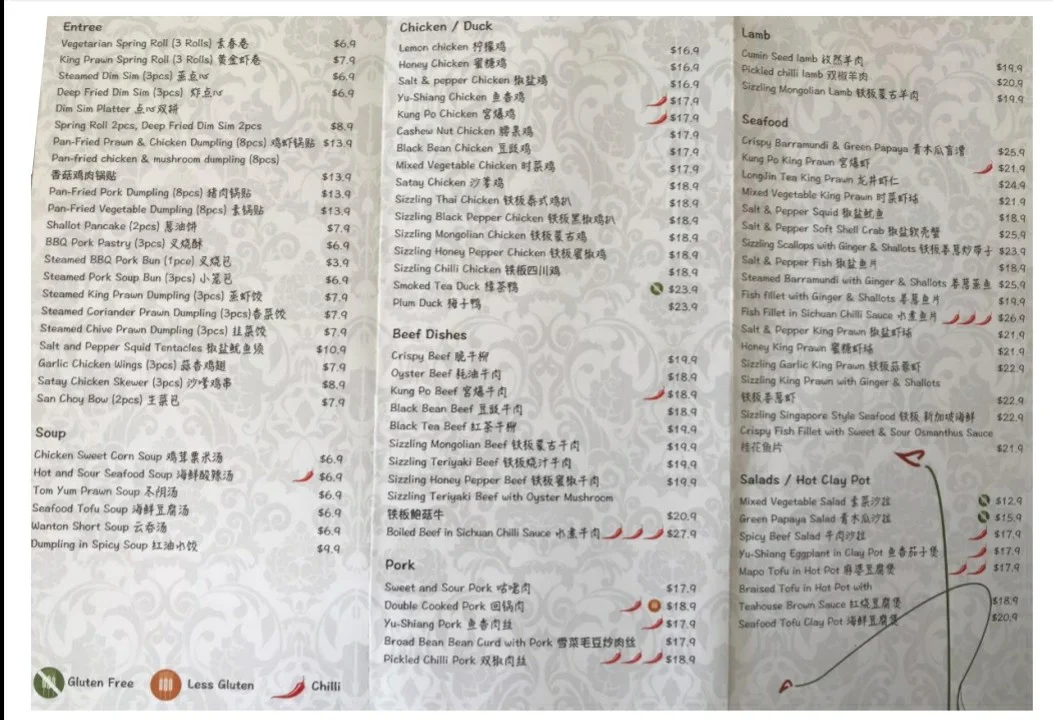 Entree
Vegetarian Spring Roll (3 Rolls) 素春卷 $6.9
King Prawn Spring Roll (3 Rolls) 黄金虾卷 $7.9
Steamed Dim Sim (3pcs) 蒸点心 $6.9
Deep Fried Dim Sim (3pcs) 炸点心 $6.9
Dim Sim Platter 点心双拼
Spring Roll 2pcs, Deep Fried Dim Sim 2pcs $8.9
Pan-Fried Prawn & Chicken Dumpling (8pcs) 鸡虾锅贴 $13.9
Pan-fried chicken & mushroom dumpling (8pcs)
香菇鸡肉锅贴 $13.9
Pan-Fried Pork Dumpling (8pcs) 猪肉锅贴 $13.9
Pan-Fried Vegetable Dumpling (8pcs) 素锅贴 $13.9
Shallot Pancake (2pcs) 葱油饼 $7.9
BBQ Pork Pastry (3pcs) 叉烧酥 $6.9
Steamed BBQ Pork Bun (1pce) 叉烧包 $3.9
Steamed Pork Soup Bun (3pcs) 小笼包 $6.9
Steamed King Prawn Dumpling (3pcs) 蒸虾饺 $7.9
Steamed Coriander Prawn Dumpling (3pcs) 香菜饺 $7.9
Steamed Chive Prawn Dumpling (3pcs) 韭菜饺 $7.9
Salt and Pepper Squid Tentacles 椒盐鱿鱼须 $10.9
Garlic Chicken Wings (3pcs) 蒜香鸡翅 $7.9
Satay Chicken Skewer (3pcs) 沙嗲鸡串 $8.9
San Choy Bow (2pcs) 生菜包 $7.9
Soup
Chicken Sweet Corn Soup 鸡茸粟米汤 $6.9
Hot and Sour Seafood Soup 海鲜酸辣汤 $6.9
Tom Yum Prawn Soup 冬阴汤 $6.9
Seafood Tofu Soup 海鲜豆腐汤 $6.9
Wanton Short Soup 云吞汤 $6.9
Dumpling in Spicy Soup 红油水饺 $9.9
Gluten Free Less Gluten Chilli
Chicken / Duck
Lemon chicken 柠檬鸡 $16.9
Honey Chicken 蜜糖鸡 $16.9
Salt & pepper Chicken 椒盐鸡 $16.9
Yu-Shiang Chicken 鱼香鸡 $17.9
Kung Po Chicken 宫爆鸡 $17.9
Cashew Nut Chicken 腰果鸡 $17.9
Black Bean Chicken 豆豉鸡 $17.9
Mixed Vegetable Chicken 时菜鸡 $17.9
Satay Chicken 沙爹鸡 $18.9
Sizzling Thai Chicken 铁板泰式鸡扒 $18.9
Sizzling Black Pepper Chicken 铁板黑椒鸡扒 $18.9
Sizzling Mongolian Chicken 铁板蒙古鸡 $18.9
Sizzling Honey Pepper Chicken 铁板蜜椒鸡 $18.9
Sizzling Chilli Chicken 铁板四川鸡 $18.9
Smoked Tea Duck 樟茶鸭 $23.9
Plum Duck 梅子鸭 $23.9
Beef Dishes
Crispy Beef 脆牛柳 $19.9
Oyster Beef 耗油牛肉 $18.9
Kung Po Beef 宫爆牛肉 $18.9
Black Bean Beef 豆豉牛肉 $18.9
Black Tea Beef 红茶牛柳 $19.9
Sizzling Mongolian Beef 铁板蒙古牛肉 $19.9
Sizzling Teriyaki Beef 铁板烧汁牛肉 $19.9
Sizzling Honey Pepper Beef 铁板蜜椒牛肉 $19.9
Sizzling Teriyaki Beef with Oyster Mushroom
铁板鲍菇牛 $20.9
Boiled Beef in Sichuan Chilli Sauce 水煮牛肉 $27.9
Pork
Sweet and Sour Pork 咕咾肉 $17.9
Double Cooked Pork 回锅肉 $18.9
Yu-Shiang Pork 鱼香肉丝 $17.9
Broad Bean Bean Curd with Pork 雪菜毛豆炒肉丝 $17.9
Pickled Chilli Pork 双椒肉丝 $18.9
Lamb
Cumin Seed lamb 孜然羊肉 $19.9
Pickled chilli lamb 双椒羊肉 $20.9
Sizzling Mongolian Lamb 铁板蒙古羊肉 $19.9
Seafood
Crispy Barramundi & Green Papaya 青木瓜盲漕 $25.9
Kung Po King Prawn 宫爆虾 $21.9
LongJin Tea King Prawn 龙井虾仁 $24.9
Mixed Vegetable King Prawn 时菜虾球 $21.9
Salt & Pepper Squid 椒盐鱿鱼 $18.9
Salt & Pepper Soft Shell Crab 椒盐软壳蟹 $25.9
Sizzling Scallops with Ginger & Shallots 铁板姜葱炒带子 $23.9
Salt & Pepper Fish 椒盐鱼片 $18.9
Steamed Barramundi with Ginger & Shallots 姜葱蒸鱼 $25.9
Fish fillet with Ginger & Shallots 姜葱鱼片 $19.9
Fish Fillet in Sichuan Chilli Sauce 水煮鱼片 $26.9
Salt & Pepper King Prawn 椒盐虾球 $21.9
Honey King Prawn 蜜糖虾球 $21.9
Sizzling Garlic King Prawn 铁板蒜蓉虾 $22.9
Sizzling King Prawn with Ginger & Shallots
铁板姜葱虾 $22.9
Sizzling Singapore Style Seafood 铁板 新加坡海鲜 $22.9
Crispy Fish Fillet with Sweet & Sour Osmanthus Sauce
桂花鱼片 $21.9
Salads / Hot Clay Pot
Mixed Vegetable Salad 素菜沙拉 $12.9
Green Papaya Salad 青木瓜沙拉 $15.9
Spicy Beef Salad 牛肉沙拉 $17.9
Yu-Shiang Eggplant in Clay Pot 鱼香茄子煲 $17.9
Mapo Tofu in Hot Pot 麻婆豆腐煲 $17.9
Braised Tofu in Hot Pot with
Teahouse Brown Sauce 红烧豆腐煲 $18.9
Seafood Tofu Clay Pot 海鲜豆腐煲 $20.9